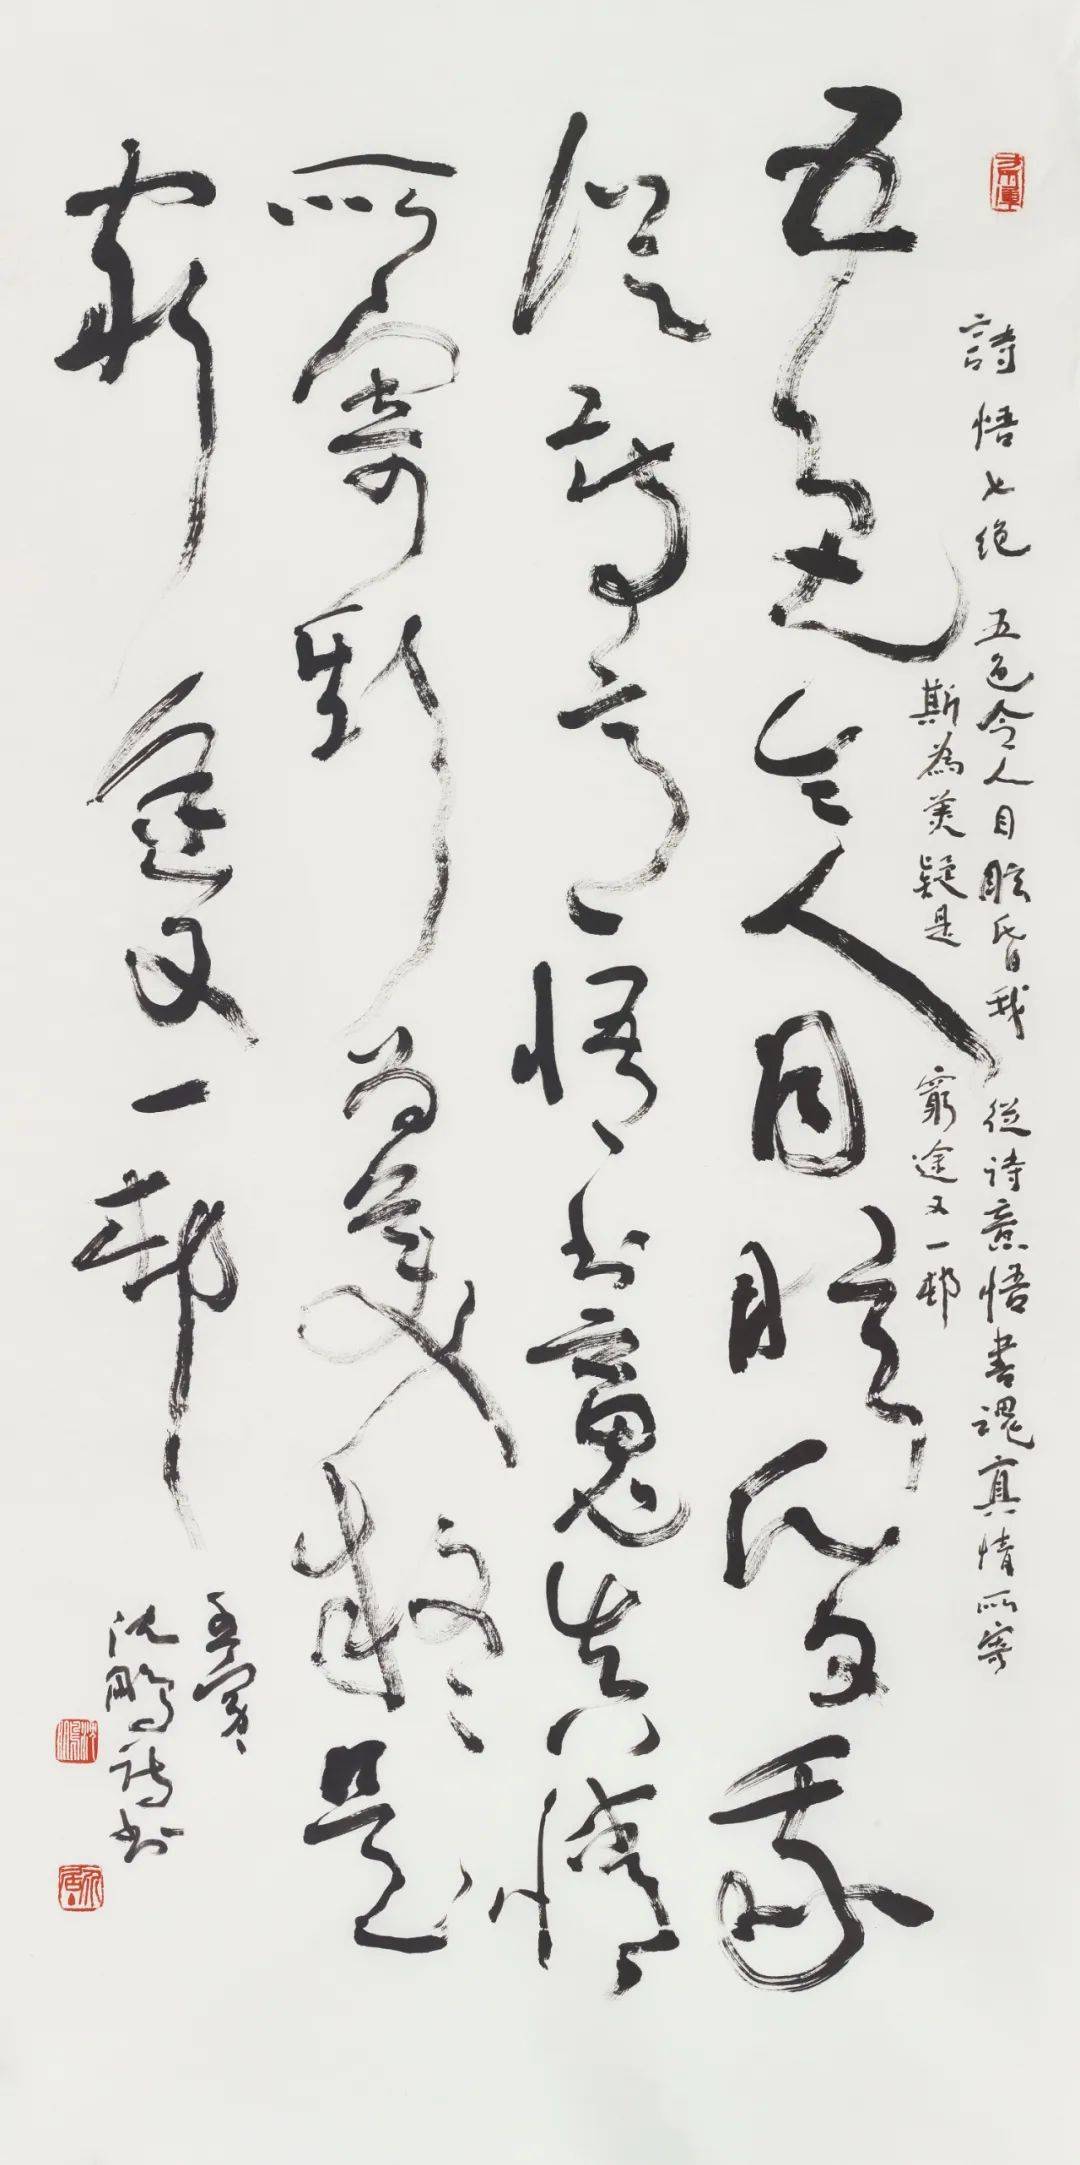 詩悟七绝 五色令人目眩昏我從诗意悟書魂真情所寄
斯為美疑是窮途又一邨
五色令人目眩昏我
從詩意悟书魂真情
所寄斯为美疑是
窮途又一邨
壬寅
沈鹏诗书
沈鹏
介居